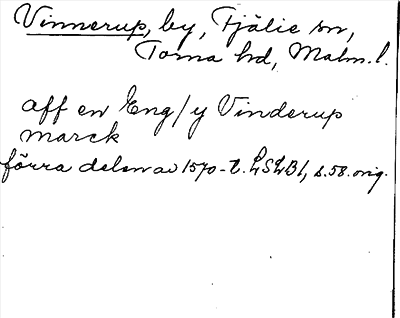 Vinnerup, by, Fjälie sn,
Torna hd, Malm. l.
aff en Eng/y Vinderup
marck
förra delen av 1570-t. LSLB1, s.58. orig.